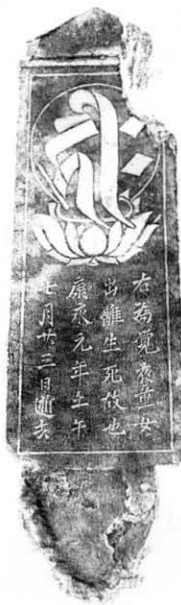 𑖮𑖿𑖨𑖱𑖾
右為覚夜童女
出離生死故也
康永元年壬午
七月廿三日逝去